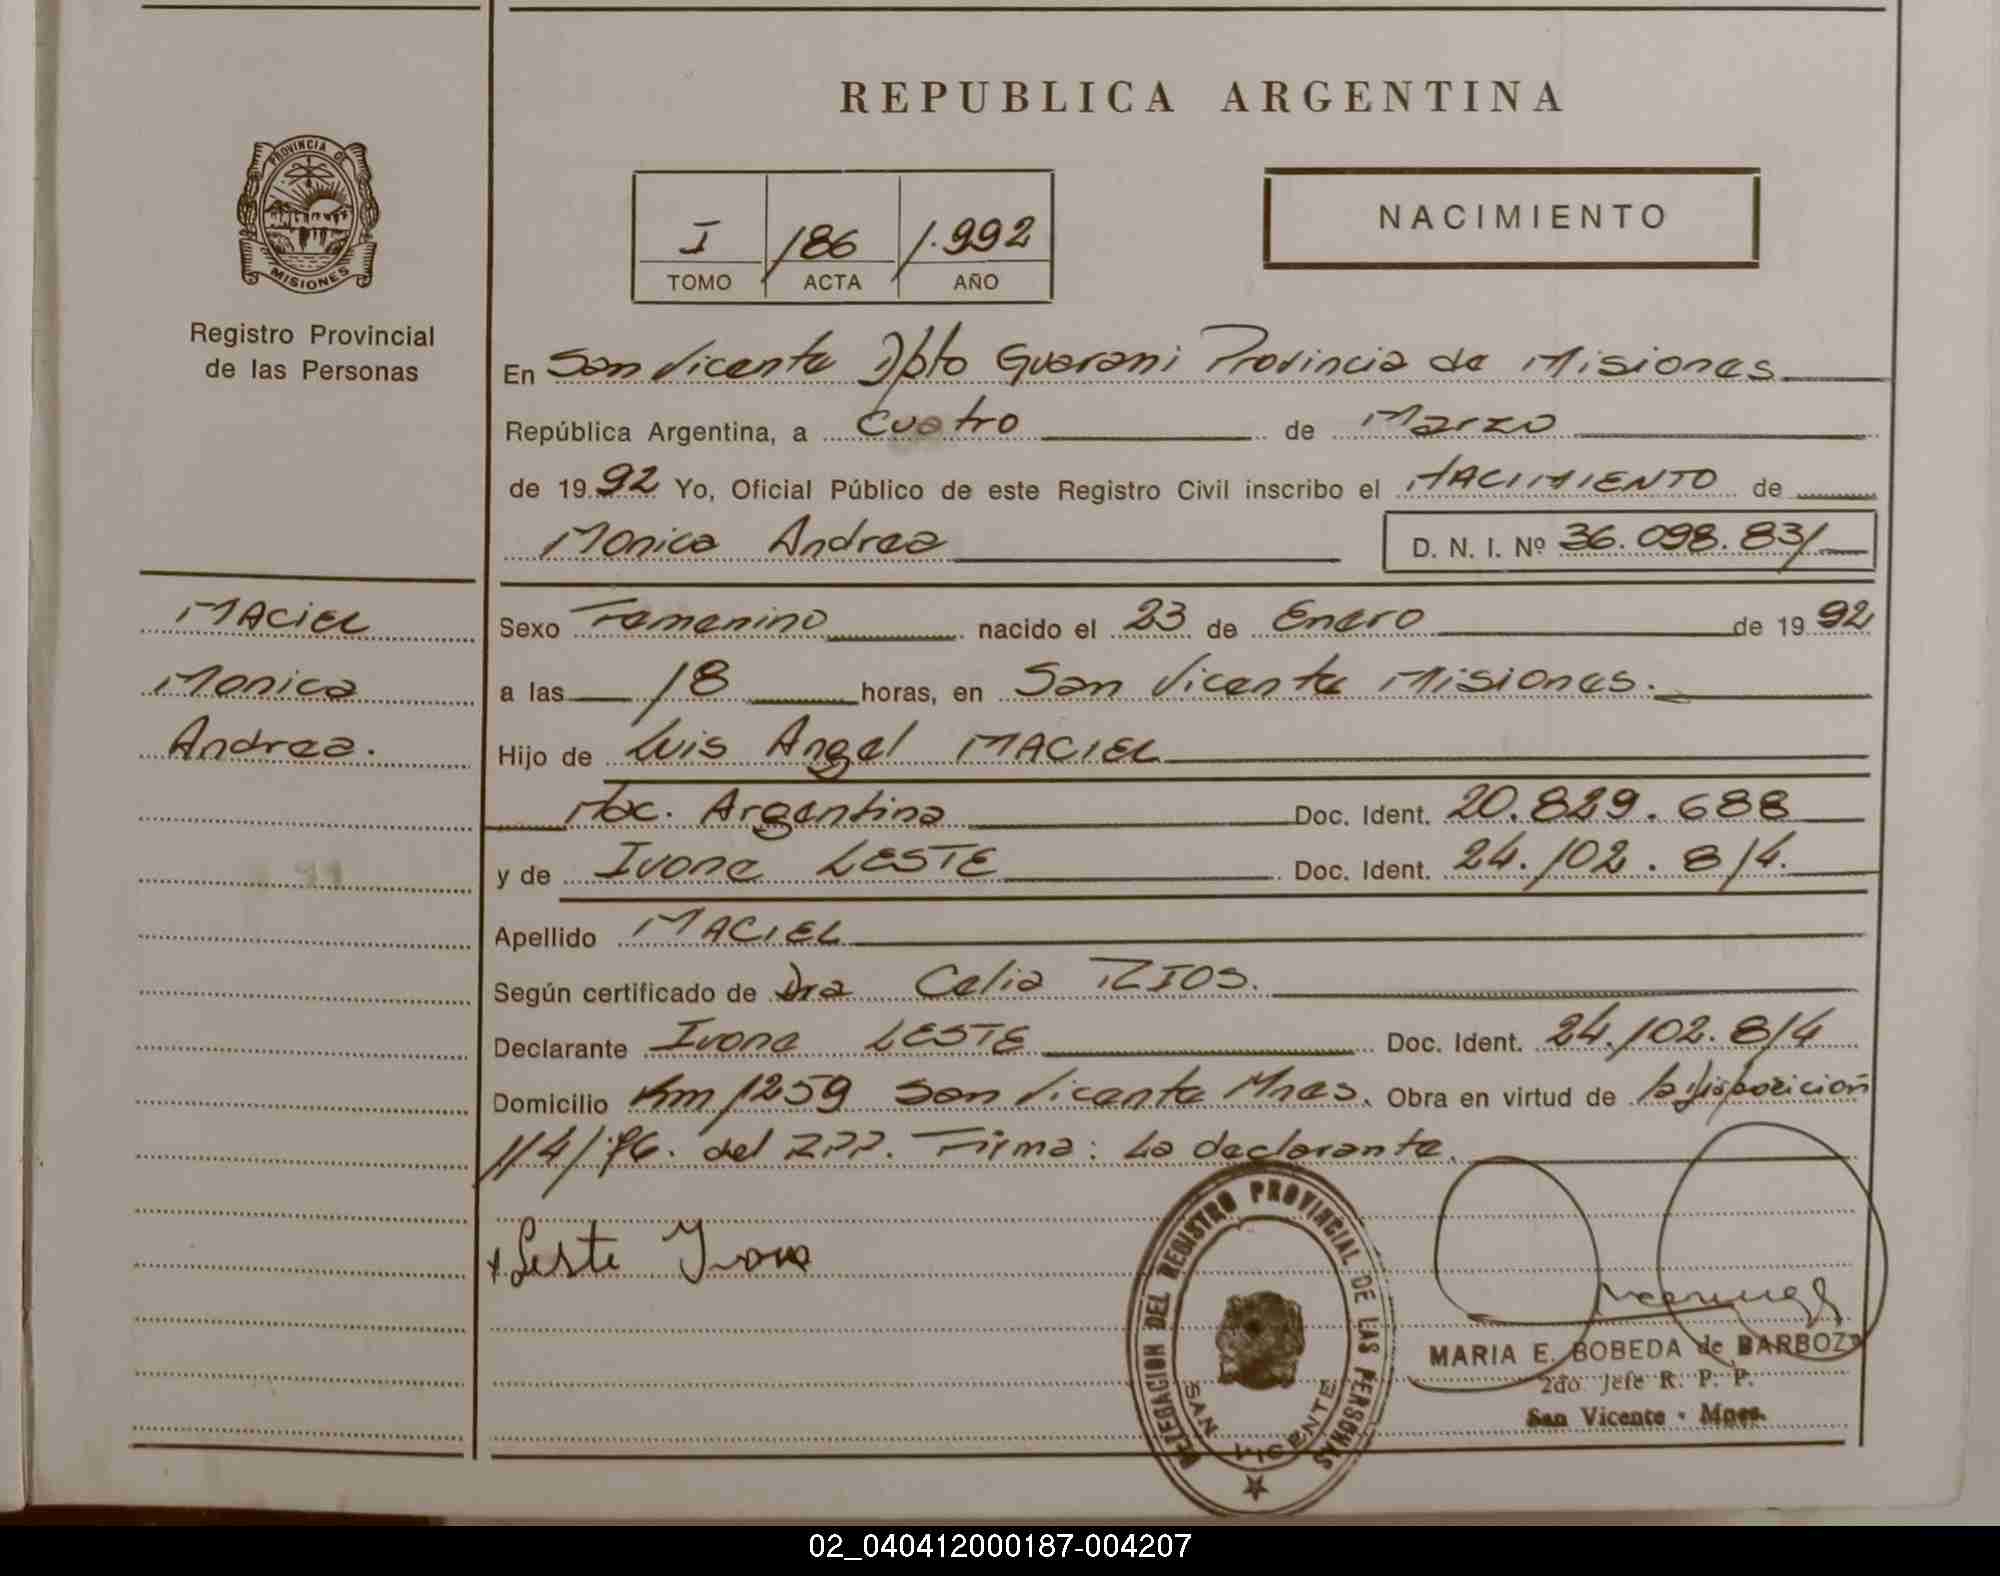 REPUBLICA ARGENTINA
PROVINCIA DE MISIONES
Registro Provincial
de las Personas
I 186 1.992
TOMO ACTA AÑO
NACIMIENTO
En San Vicente Dpto Guarani Provincia de Misiones
República Argentina, a Cuatro de Marzo
de 1992 Yo, Oficial Público de este Registro Civil inscribo el NACIMIENTO de
Monica Andrea D. N. I. Nº 36.098.831
MACIEL
Monica
Andrea.
Sexo Femenino nacido el 23 de Enero de 1992
a las 18 horas, en San Vicente Misiones.
Hijo de Luis Angel MACIEL
Nac. Argentina Doc. Ident. 20.829.688
y de Ivone LESTE Doc. Ident. 24.102.814.
Apellido MACIEL
Según certificado de Dra Celia RIOS.
Declarante Ivone LESTE Doc. Ident. 24.102.814
Domicilio Km 1259 San Vicente Mnes. Obra en virtud de la disposición
114/76. del RPP. Firma: La declarante.
Leste Ivone
DELEGACION DEL REGISTRO PROVINCIAL DE LAS PERSONAS
SAN VICENTE
MARIA E. BOBEDA de BARBOZA
2do Jefe R. P. P.
San Vicente - Mnes.
02_040412000187-004207